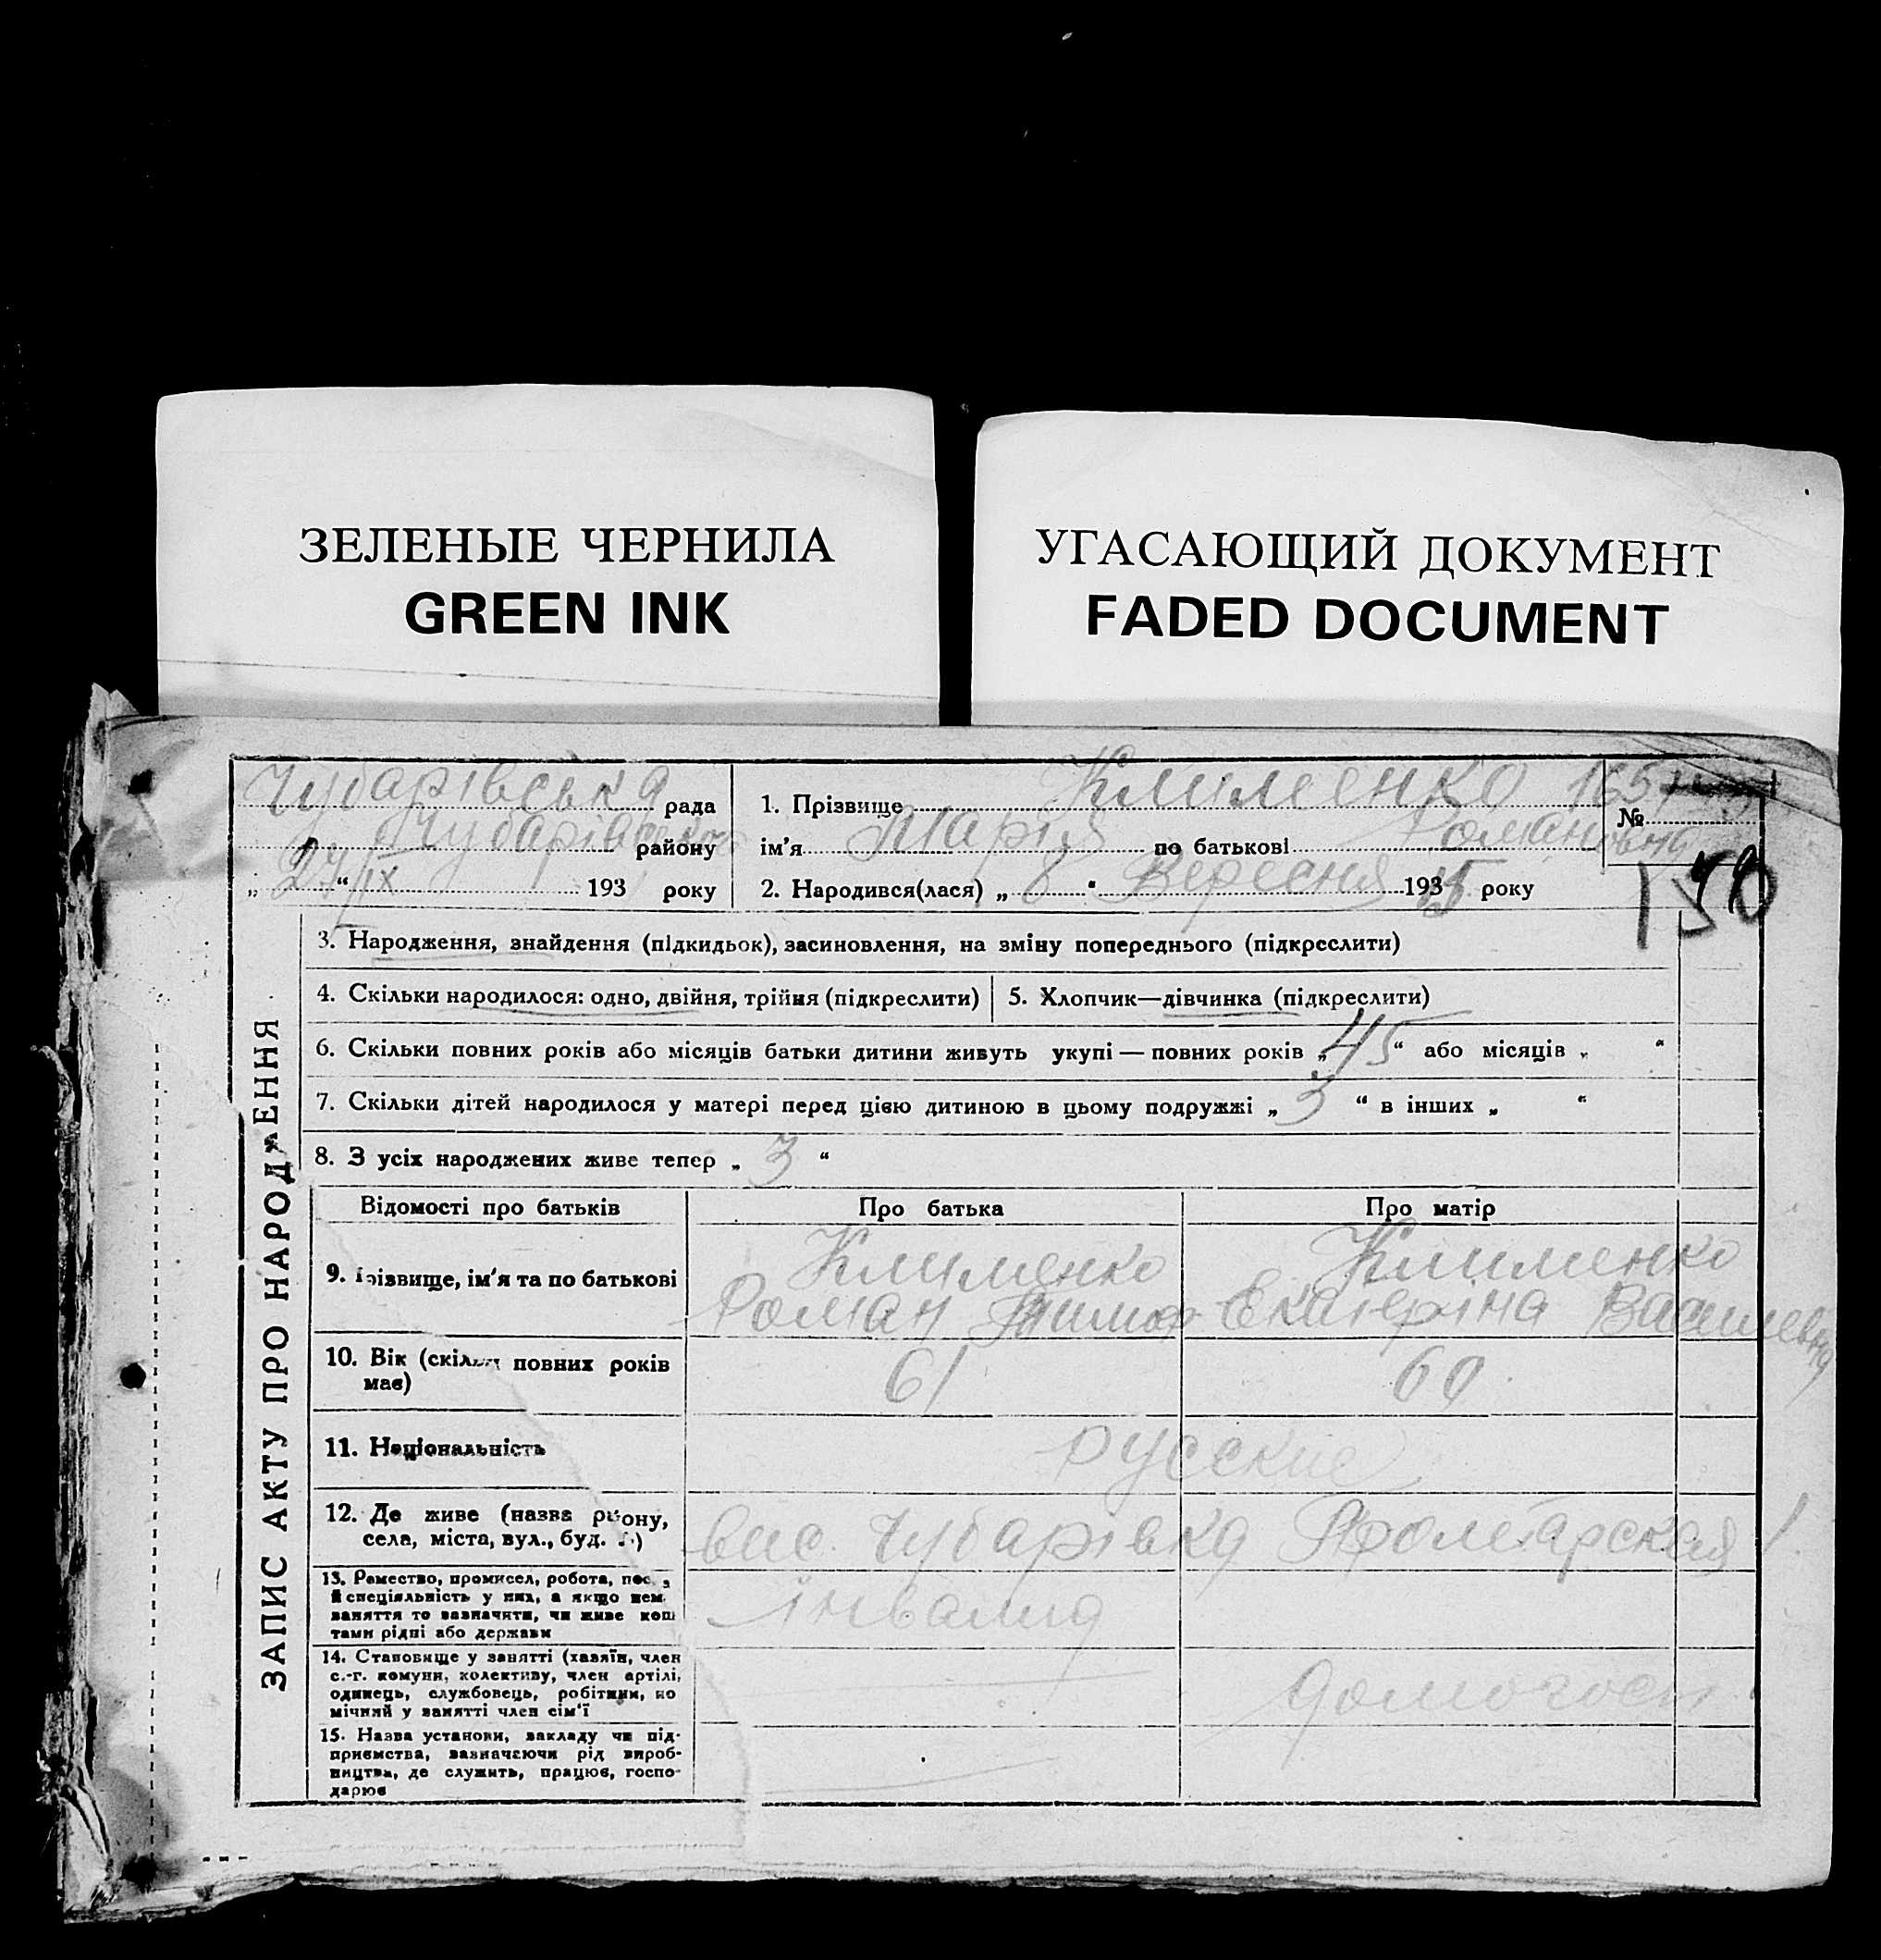 ЗЕЛЕНЫЕ ЧЕРНИЛА
GREEN INK
УГАСАЮЩИЙ ДОКУМЕНТ
FADED DOCUMENT
Чубарівська рада
Чубарівського району
„ 27/IX “ 193 року
1. Прізвище Клименко
ім'я Марія по батькові Романовна
2. Народився(лася) „ 8 “ Вересня 1935 року
№
150
ЗАПИС АКТУ ПРО НАРОДЖЕННЯ
3. Народження, знайдення (підкидьок), засиновлення, на зміну попереднього (підкреслити)
4. Скільки народилося: одно, двійня, трійня (підкреслити)
5. Хлопчик—дівчинка (підкреслити)
6. Скільки повних років або місяців батьки дитини живуть укупі — повних років „ 45 “ або місяців „ “
7. Скільки дітей народилося у матері перед цією дитиною в цьому подружжі „ 3 “ в інших „ “
8. З усіх народжених живе тепер „ 3 “
Відомості про батьків
Про батька
Про матір
9. Прізвище, ім'я та по батькові
Клименко
Роман
Клименко
Екатеріна Василевна
10. Вік (скільки повних років
має)
61
60
11. Національність
русские
12. Де живе (назва району,
села, міста, вул., буд. №)
вис. Чубарівка Пролетарская 1.
13. Ремество, промисел, робота, пос.,
й спеціяльність у них, а якщо нема
заняття то зазначити, чи живе кош
тами рідні або держави
інвалид
14. Становище у занятті (хазяїн, член
с.-г. комуни, колективу, член артілі,
одинець, службовець, робітник, по
мічний у занятті член сім'ї
домогосп.
15. Назва установи, закладу чи під-
приємства, зазначаючи рід вироб-
ництва, де служить, працює, госпо-
дарює